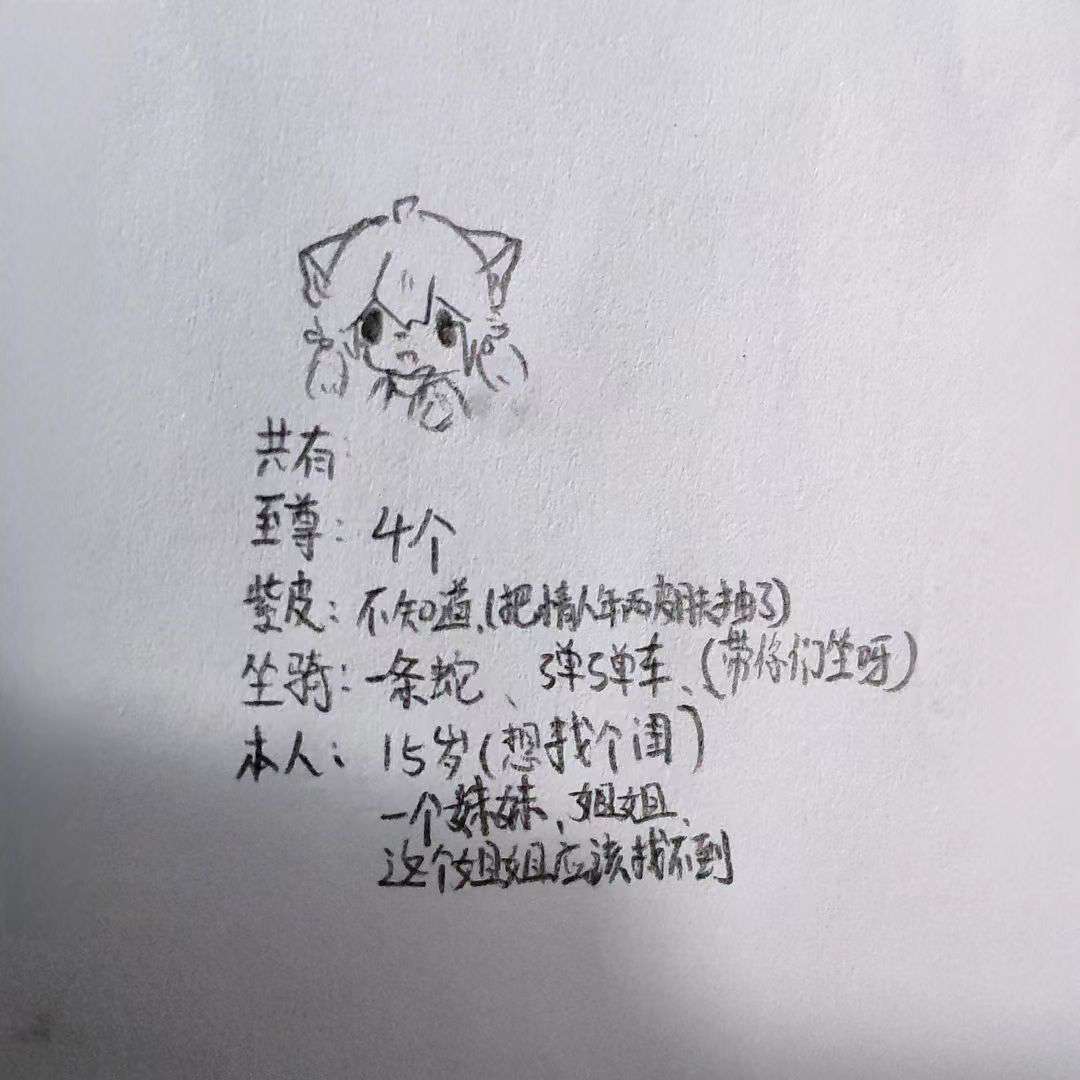 共有:
至尊: 4个
紫皮: 不知道,(把情人年两皮肤抽了)
坐骑: 一条蛇、弹弹车、(带你们坐呀)
本人: 15岁(想找个闺)
一个妹妹、姐姐,
这个姐姐应该找不到